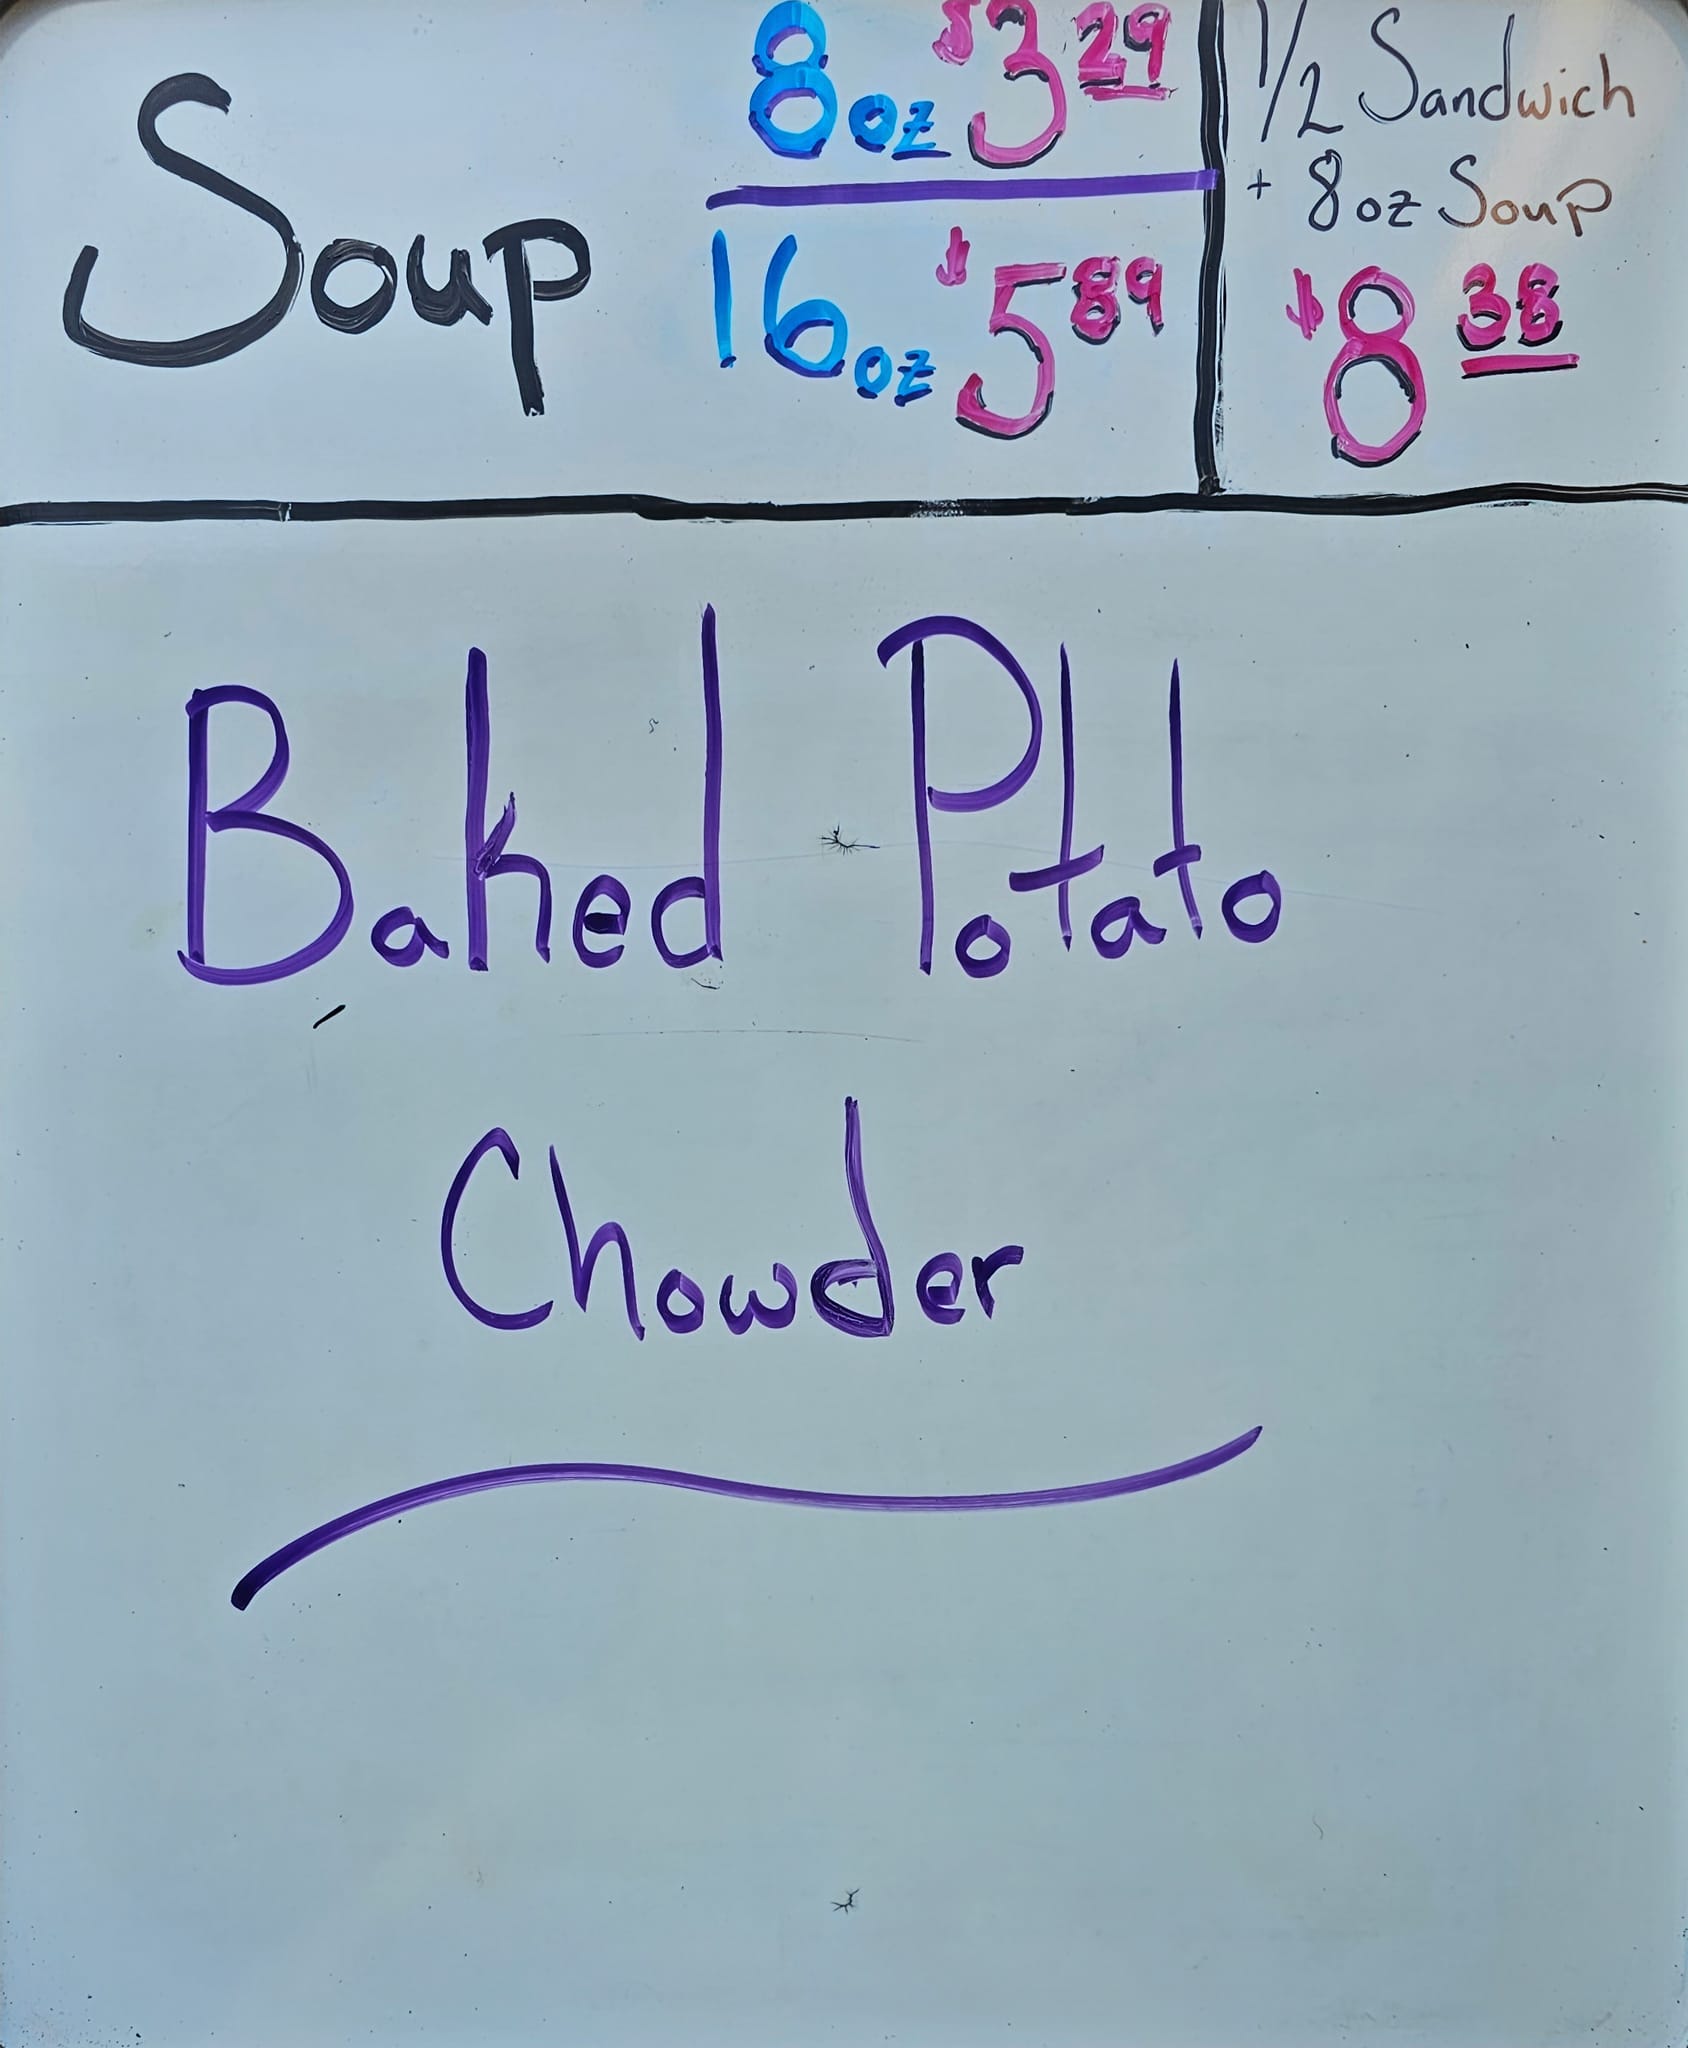 Soup
8oz $3.29
16oz $5.89
1/2 Sandwich
+ 8oz Soup
$8.38
Baked Potato
Chowder